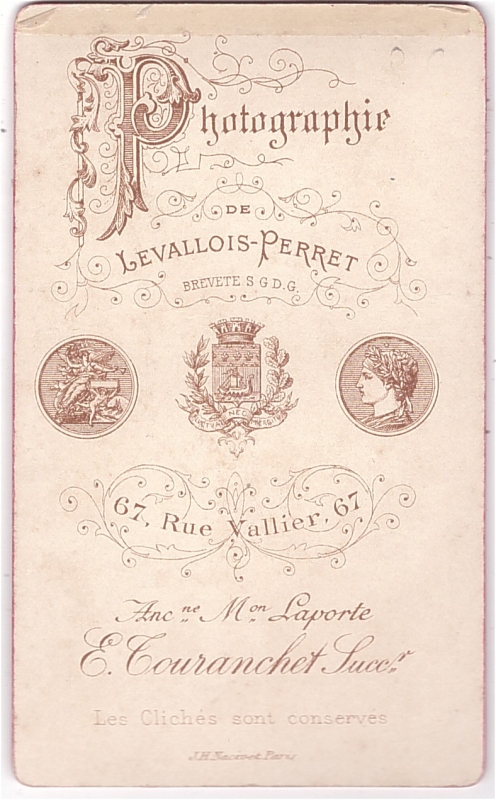 Photographie
DE
LEVALLOIS-PERRET
BREVETE S G D.G.
67, Rue Vallier, 67
Anc.ne M.on Laporte
E. Touranchet Succ.r
Les Clichés sont conservés
Paris